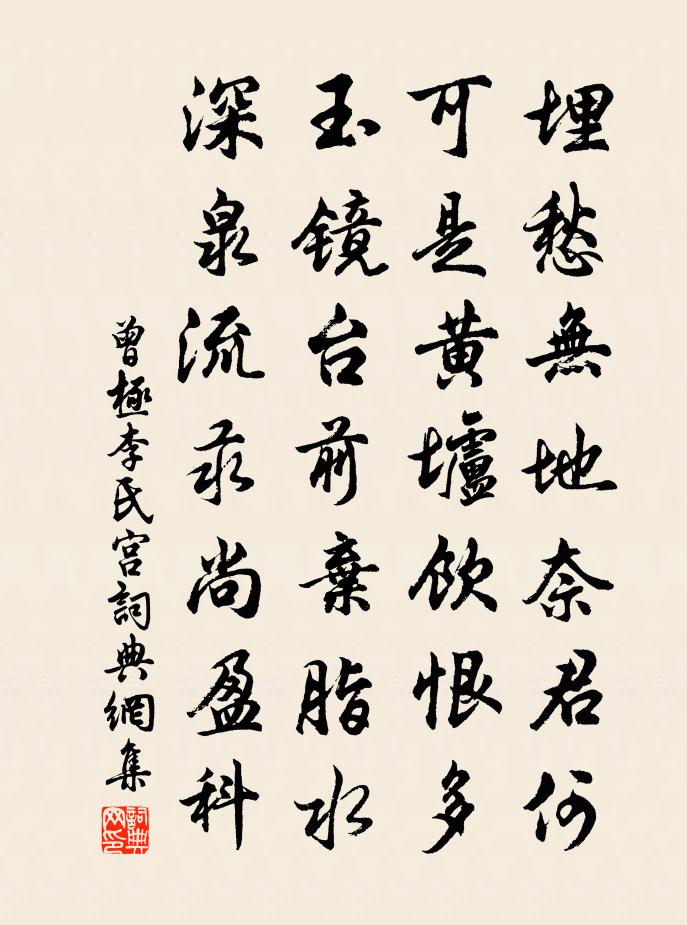 埋愁無地奈君何
可是黃壚饮恨多
玉镜台前棄脂水
深泉流汞尚盈科
曾極李氏宫詞典網集
詞典网印